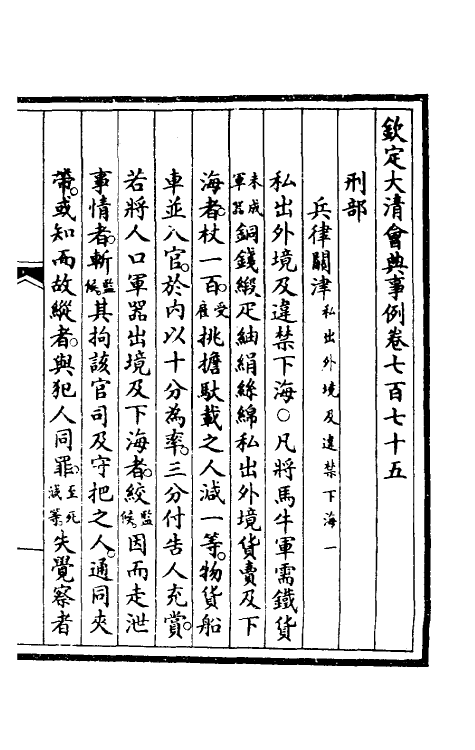 欽定大清會典事例卷七百七十五
刑部
兵律關津私出外境及違禁下海一
私出外境及違禁下海○凡將馬牛軍需鐵貨
未成軍器銅錢緞疋紬絹絲綿私出外境貨賣及下
海者。杖一百。受雇挑擔馱載之人減一等。物貨船
車並入官。於內以十分為率。三分付告人充賞。
若將人口軍器出境及下海者。絞監候。因而走泄
事情者。斬監候。其拘該官司及守把之人。通同夾
帶。或知而故縱者。與犯人同罪。至死減等。失覺察者